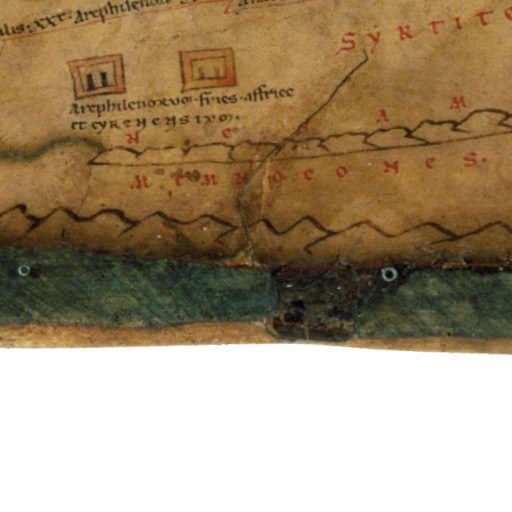 alis·xxx· Arephilenor
SYRTITE
Arephilenorum·fines·affrice
et cyrenensium·
N C S A M
MEMNOCONES·